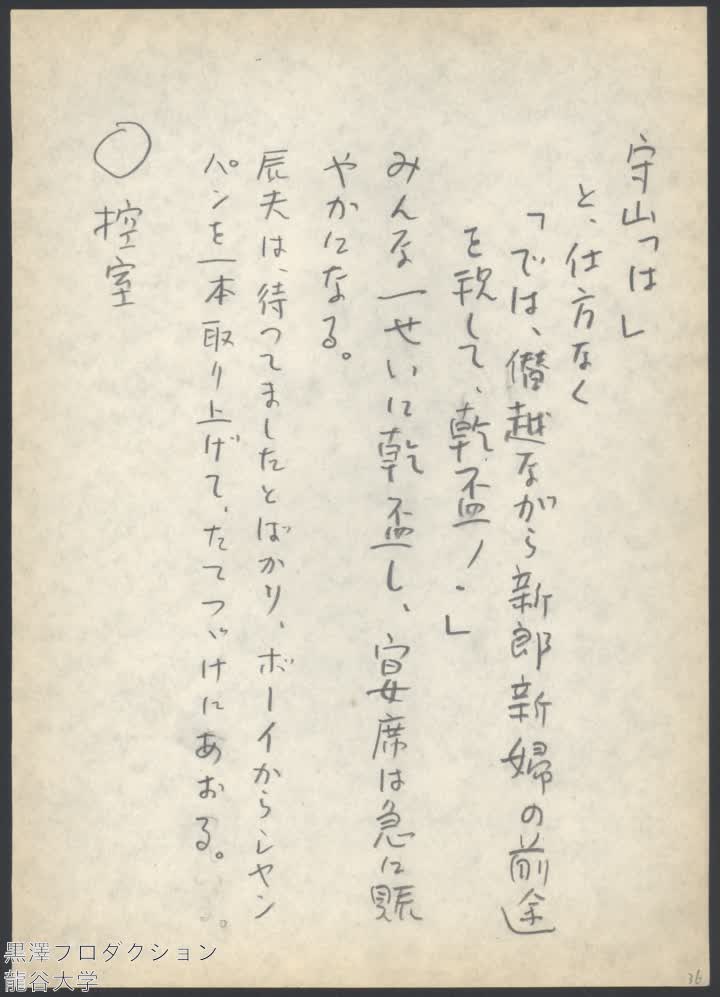 守山「は」
と、仕方なく
「では、僭越ながら新郎新婦の前途
を祝して、乾盃！」
みんな一せいに乾盃し、宴席は急に賑
やかになる。
辰夫は、待つてましたとばかり、ボーイからシャン
パンを一本取り上げて、たてつゞけにあおる。
○ 控室
36
黒澤プロダクション
龍谷大学